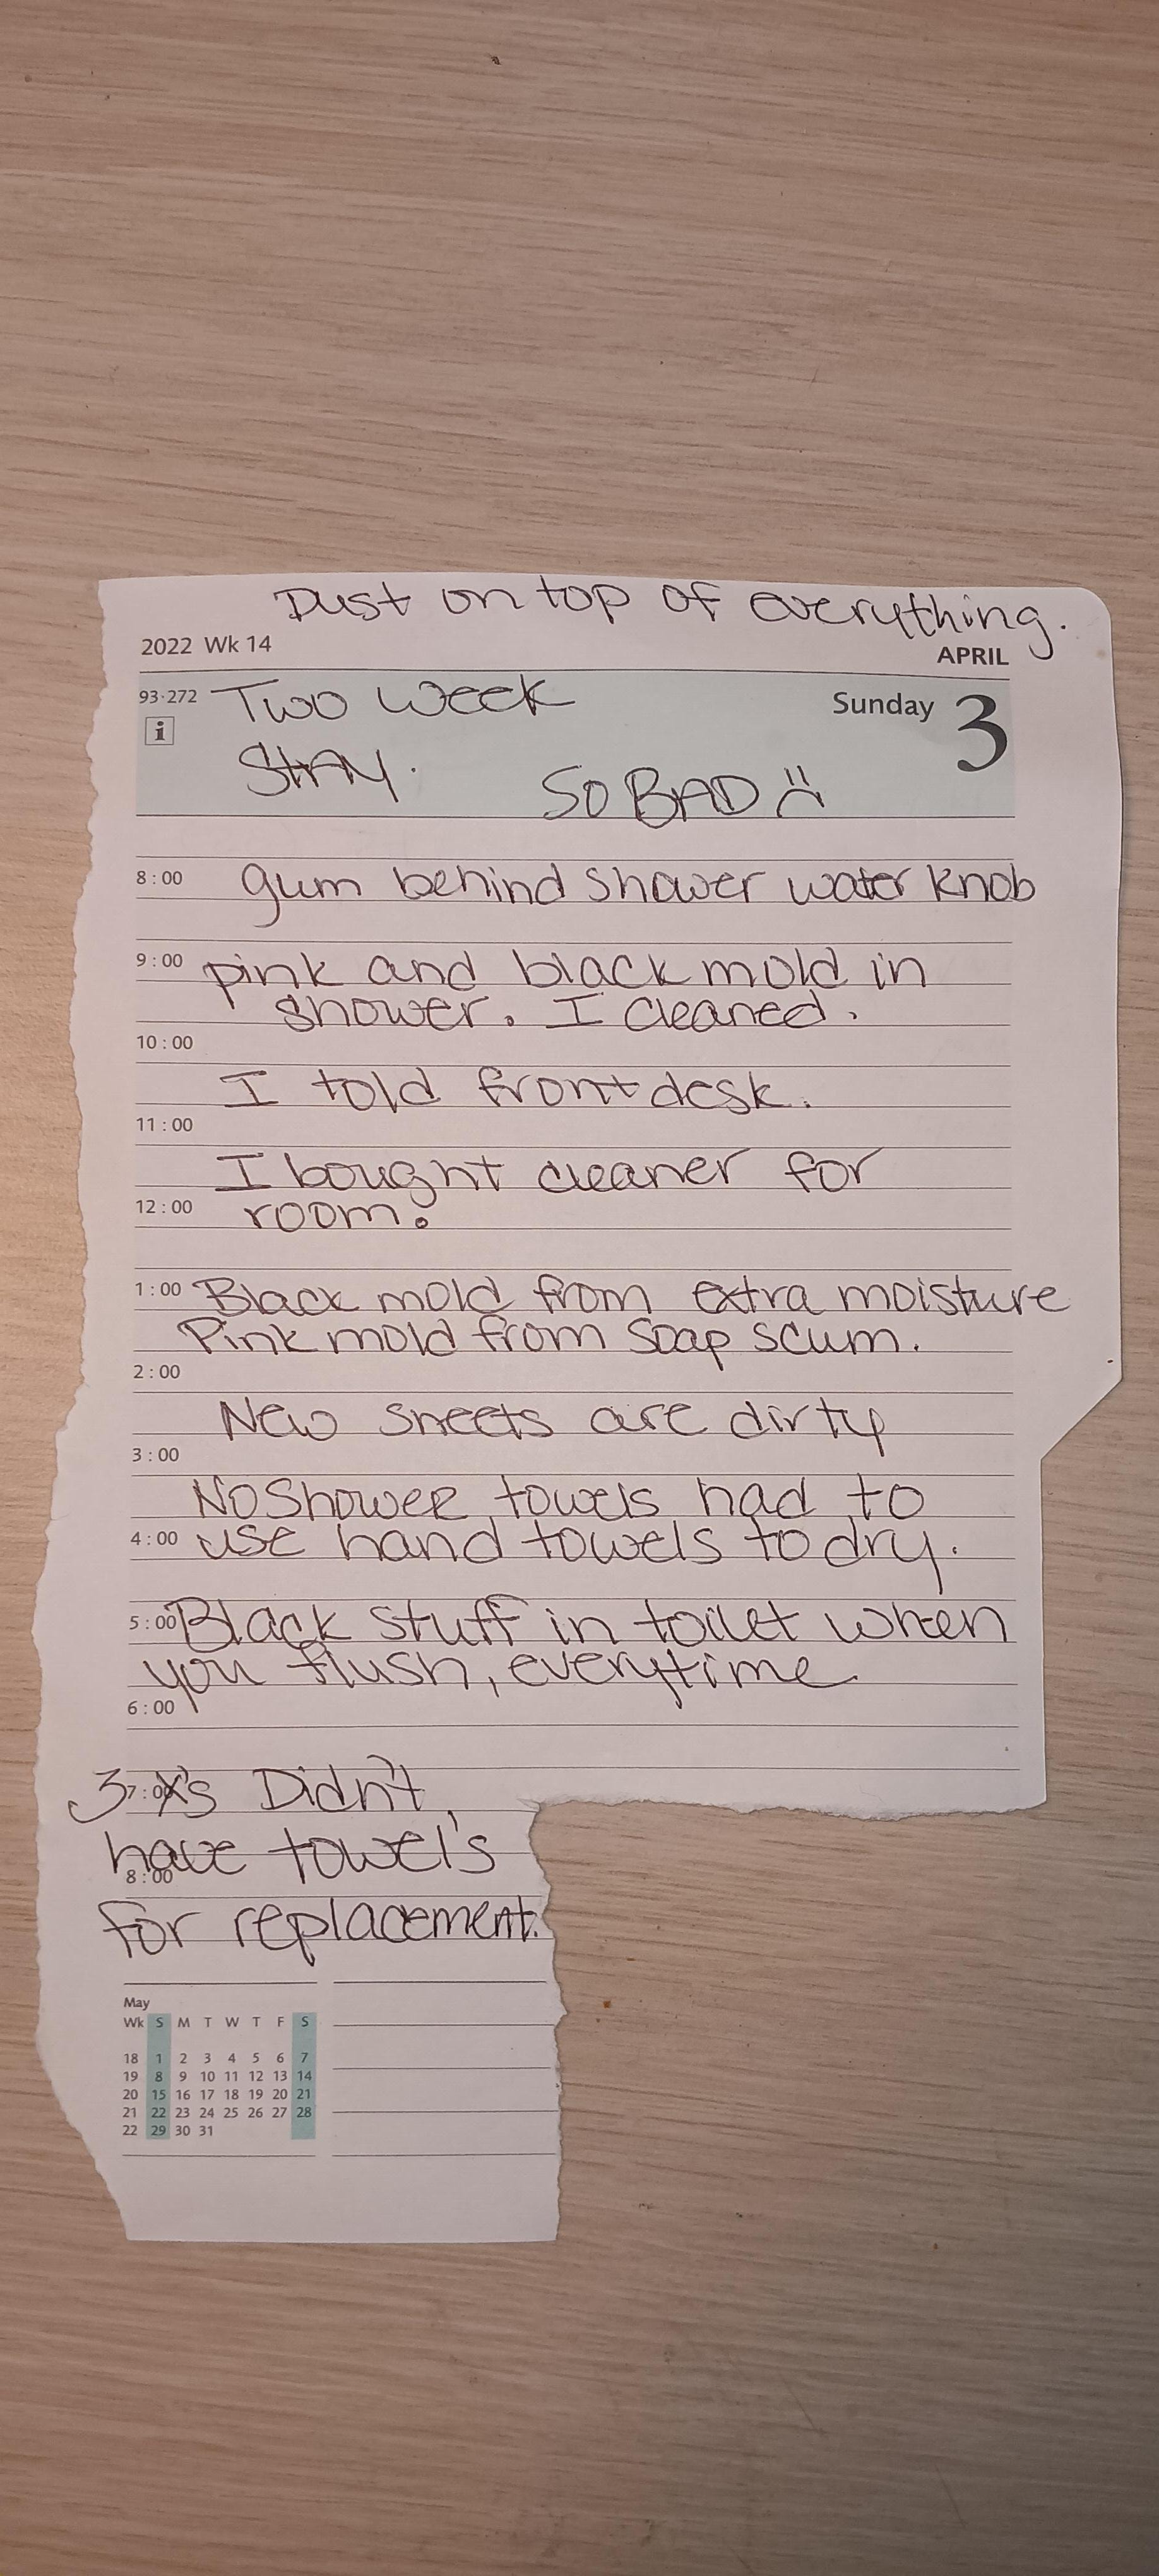 Dust on top of everything.
2022 Wk 14
APRIL
93-272
Two week
Sunday 3
i
Stay.
SO BAD
8:00 gum behind shower water knob
9:00 pink and black mold in
shower. I cleaned.
10:00
I told front desk.
11:00
I bought cleaner for
12:00 room.
1:00 Black mold from extra moisture
Pink mold from soap scum.
2:00
New sheets are dirty
3:00
No Shower towels had to
4:00 use hand towels to dry.
5:00 Black stuff in toilet when
you flush, everytime
6:00
7:00
3 X's Didn't
have towel's
8:00
for replacement.
May
Wk S M T W T F S
18 1 2 3 4 5 6 7
19 8 9 10 11 12 13 14
20 15 16 17 18 19 20 21
21 22 23 24 25 26 27 28
22 29 30 31